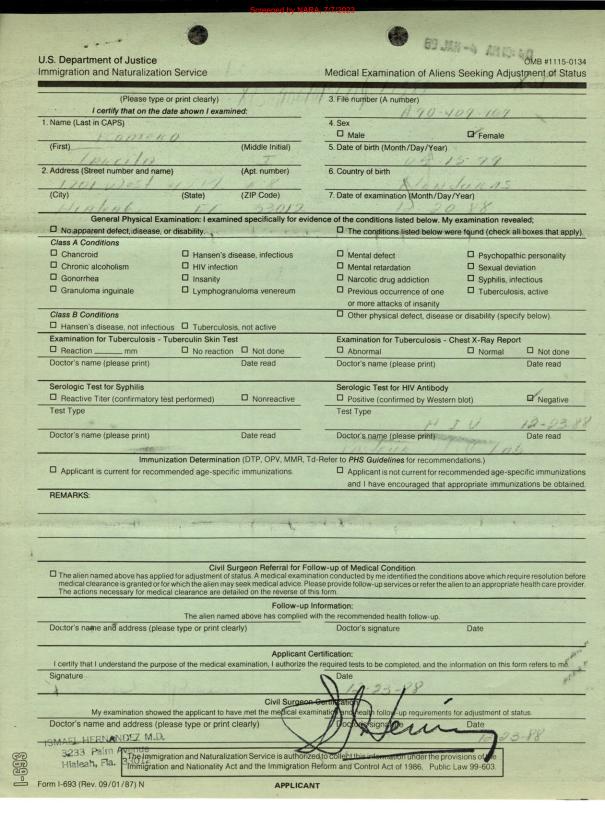 Screened by NARA, 7/7/2023
U.S. Department of Justice
Immigration and Naturalization Service
OMB #1115-0134
Medical Examination of Aliens Seeking Adjustment of Status
(Please type or print clearly)
I certify that on the date shown I examined:
3. File number (A number)
A90-409-109
1. Name (Last in CAPS)
4. Sex
Male
Female
(First)
(Middle Initial)
5. Date of birth (Month/Day/Year)
I
2. Address (Street number and name)
(Apt. number)
6. Country of birth
Honduras
(City)
(State)
(ZIP Code)
7. Date of examination (Month/Day/Year)
Hialeah
Fl
33012
General Physical Examination: I examined specifically for evidence of the conditions listed below. My examination revealed;
No apparent defect, disease, or disability.
The conditions listed below were found (check all boxes that apply).
Class A Conditions
Chancroid
Hansen's disease, infectious
Mental defect
Psychopathic personality
Chronic alcoholism
HIV infection
Mental retardation
Sexual deviation
Gonorrhea
Insanity
Narcotic drug addiction
Syphilis, infectious
Granuloma inguinale
Lymphogranuloma venereum
Previous occurrence of one
or more attacks of insanity
Tuberculosis, active
Class B Conditions
Other physical defect, disease or disability (specify below).
Hansen's disease, not infectious
Tuberculosis, not active
Examination for Tuberculosis - Tuberculin Skin Test
Examination for Tuberculosis - Chest X-Ray Report
Reaction ______ mm
No reaction
Not done
Abnormal
Normal
Not done
Doctor's name (please print)
Date read
Doctor's name (please print)
Date read
Serologic Test for Syphilis
Serologic Test for HIV Antibody
Reactive Titer (confirmatory test performed)
Nonreactive
Positive (confirmed by Western blot)
Negative
Test Type
Test Type
HIV
12-23-88
Doctor's name (please print)
Date read
Doctor's name (please print)
Date read
Immunization Determination (DTP, OPV, MMR, Td-Refer to PHS Guidelines for recommendations.)
Applicant is current for recommended age-specific immunizations.
Applicant is not current for recommended age-specific immunizations
and I have encouraged that appropriate immunizations be obtained.
REMARKS:
Civil Surgeon Referral for Follow-up of Medical Condition
The alien named above has applied for adjustment of status. A medical examination conducted by me identified the conditions above which require resolution before
medical clearance is granted or for which the alien may seek medical advice. Please provide follow-up services or refer the alien to an appropriate health care provider.
The actions necessary for medical clearance are detailed on the reverse of this form.
Follow-up Information:
The alien named above has complied with the recommended health follow-up.
Doctor's name and address (please type or print clearly)
Doctor's signature
Date
Applicant Certification:
I certify that I understand the purpose of the medical examination, I authorize the required tests to be completed, and the information on this form refers to me.
Signature
Date
12-23-88
Civil Surgeon Certification
My examination showed the applicant to have met the medical examination and health follow-up requirements for adjustment of status.
Doctor's name and address (please type or print clearly)
Doctor's signature
Date
12-23-88
ISMAEL HERNANDEZ M.D.
3233 Palm Avenue
Hialeah, Fla.
The Immigration and Naturalization Service is authorized to collect this information under the provisions of the
Immigration and Nationality Act and the Immigration Reform and Control Act of 1986, Public Law 99-603.
I-693
Form I-693 (Rev. 09/01/87) N
APPLICANT